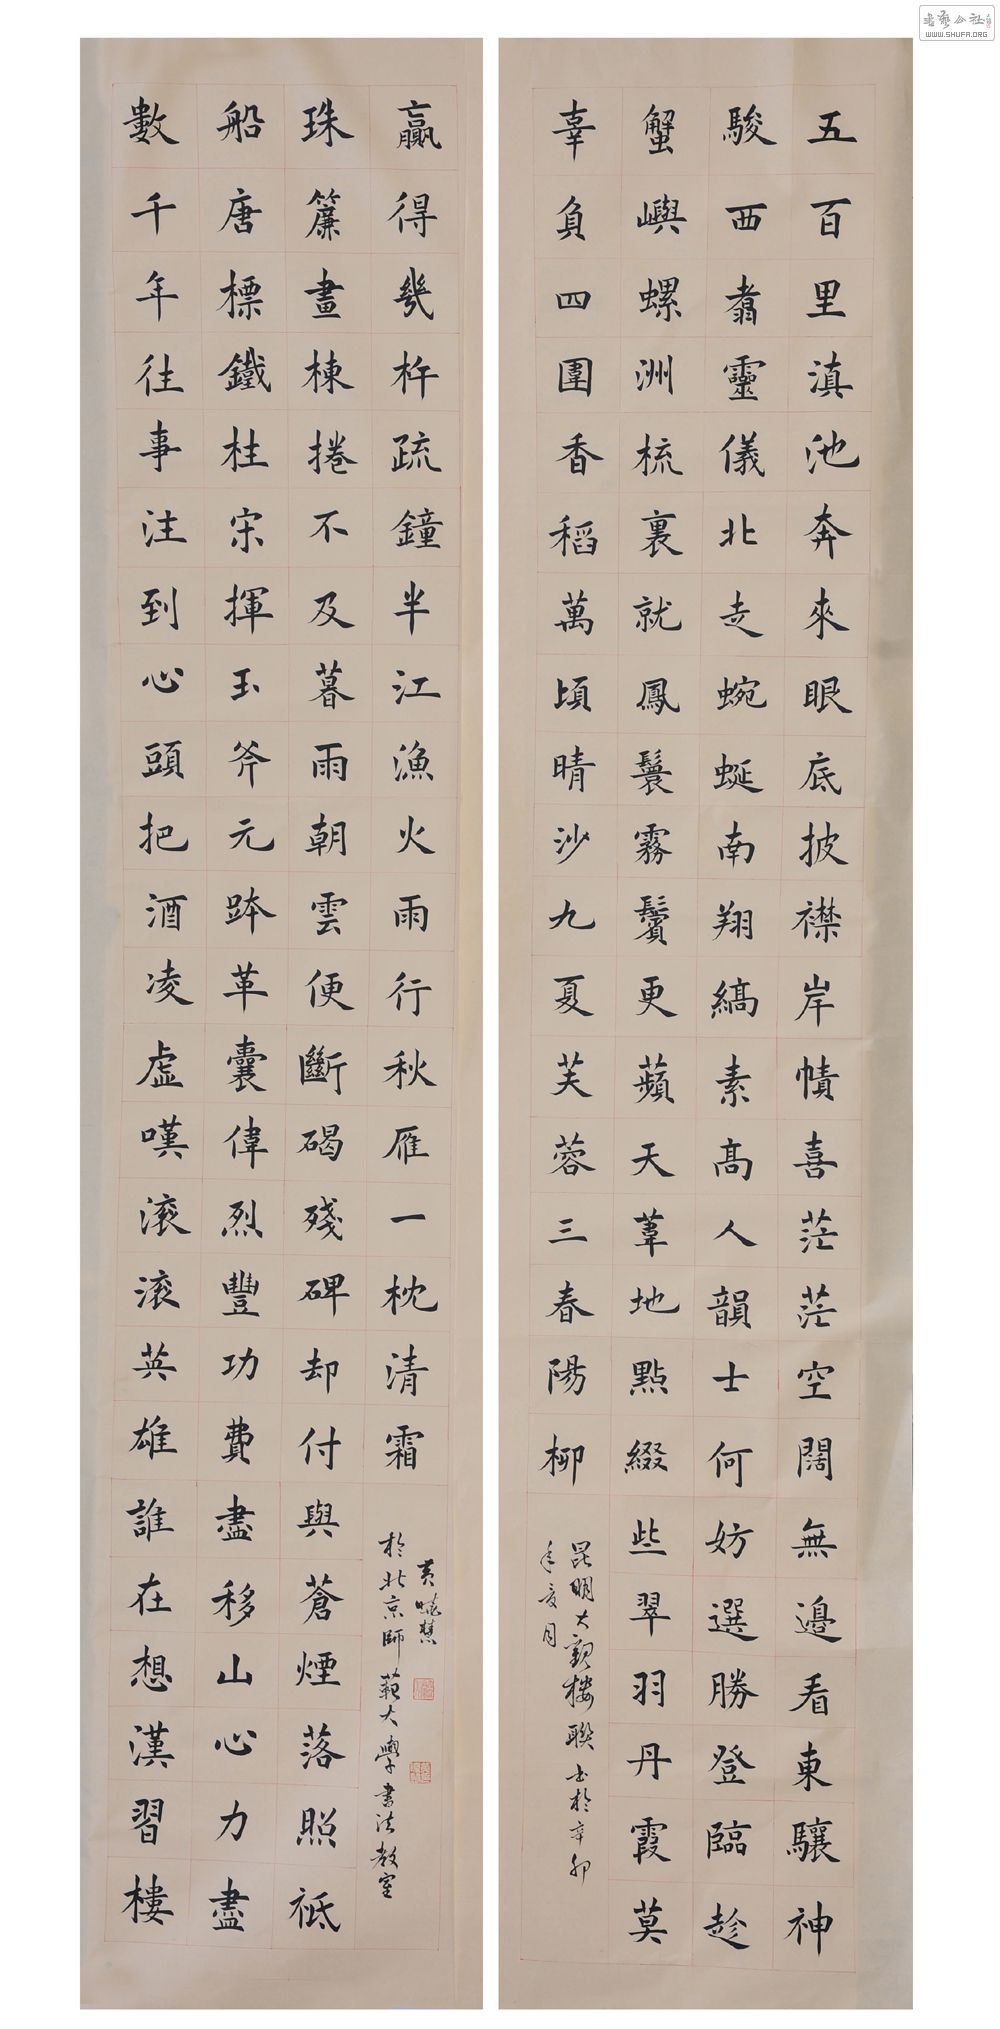 書藝公社
WWW.SHUFA.ORG
五百里滇池奔來眼底披襟岸幘喜茫茫空闊無邊看東驤神
駿西翥靈儀北走蜿蜒南翔縞素高人韻士何妨選勝登臨趁
蟹嶼螺洲梳裏就鳳鬟霧鬢更蘋天葦地點綴些翠羽丹霞莫
辜負四圍香稻萬頃晴沙九夏芙蓉三春陽柳
昆明大觀樓聯書於辛卯
年夏月
數千年往事注到心頭把酒凌虛嘆滾滾英雄誰在想漢習樓
船唐標鐵柱宋揮玉斧元跨革囊偉烈豐功費盡移山心力盡
珠簾畫棟捲不及暮雨朝雲便斷碣殘碑却付與蒼煙落照祗
贏得幾杵疏鐘半江漁火雨行秋雁一枕清霜
黃曉
於北京師範大學書法教室